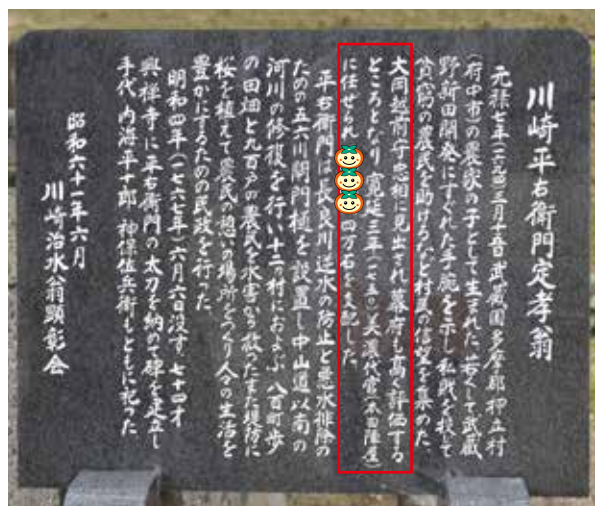 川崎平右衛門定孝翁
元禄七年(一六九四)三月十五日武蔵国多摩郡押立村
(府中市)の農家の子として生まれた、若くして武蔵
野新田開発にすぐれた手腕を示し私財を投じて
貧窮の農民を助けるなど村民の信望を集めた。
大岡越前守忠相に見出され幕府も高く評価する
ところとなり寛延三年(一七五〇)美濃代官(本田陣屋)
に任せられ 四万石を支配した。
平右衛門は長良川逆水の防止と悪水排除の
ための五六川閘門樋を設置し中山道以南の
河川の修復を行い十二村におよぶ八百町歩
の田畑と九百戸の農民を水害から救ったまた堤防に
桜を植えて農民の憩いの場所をつくり人々の生活を
豊かにするための民政を行った。
明和四年(一七六七年)六月六日没す、七十四才
興禅寺に平右衛門の太刀を納めて碑を建立し
手代内海平十郎 神保佐兵衛もともに祀った
昭和六十一年六月
川崎治水翁顕彰会